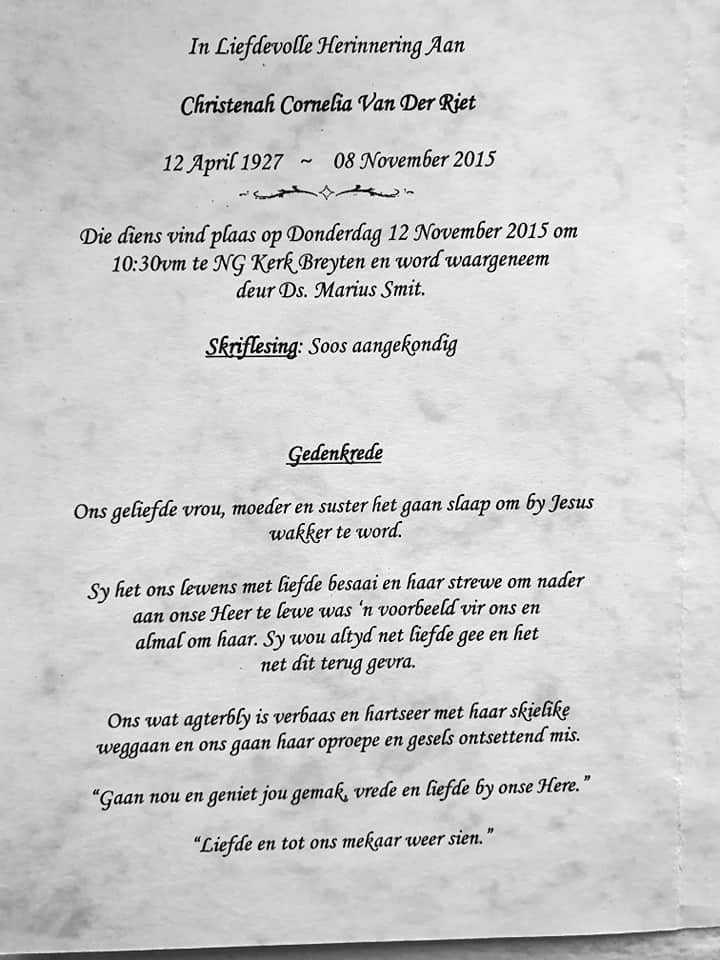 In Liefdevolle Herinnering Aan
Christenah Cornelia Van Der Riet
12 April 1927 ~ 08 November 2015
Die diens vind plaas op Donderdag 12 November 2015 om
10:30vm te NG Kerk Breyten en word waargeneem
deur Ds. Marius Smit.
Skriflesing: Soos aangekondig
Gedenkrede
Ons geliefde vrou, moeder en suster het gaan slaap om by Jesus
wakker te word.
Sy het ons lewens met liefde besaai en haar strewe om nader
aan onse Heer te lewe was ‘n voorbeeld vir ons en
almal om haar. Sy wou altyd net liefde gee en het
net dit terug gevra.
Ons wat agterbly is verbaas en hartseer met haar skielike
weggaan en ons gaan haar oproepe en gesels ontsettend mis.
“Gaan nou en geniet jou gemak, vrede en liefde by onse Here.”
“Liefde en tot ons mekaar weer sien.”